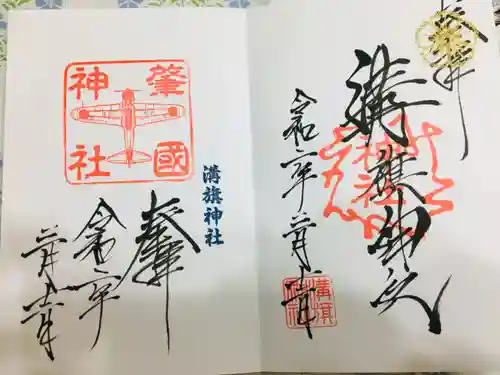 奉拝
溝旗神社
令和二年二月十一日
溝旗
肇國
神社
溝旗神社
奉拝
令和二年
二月十一日